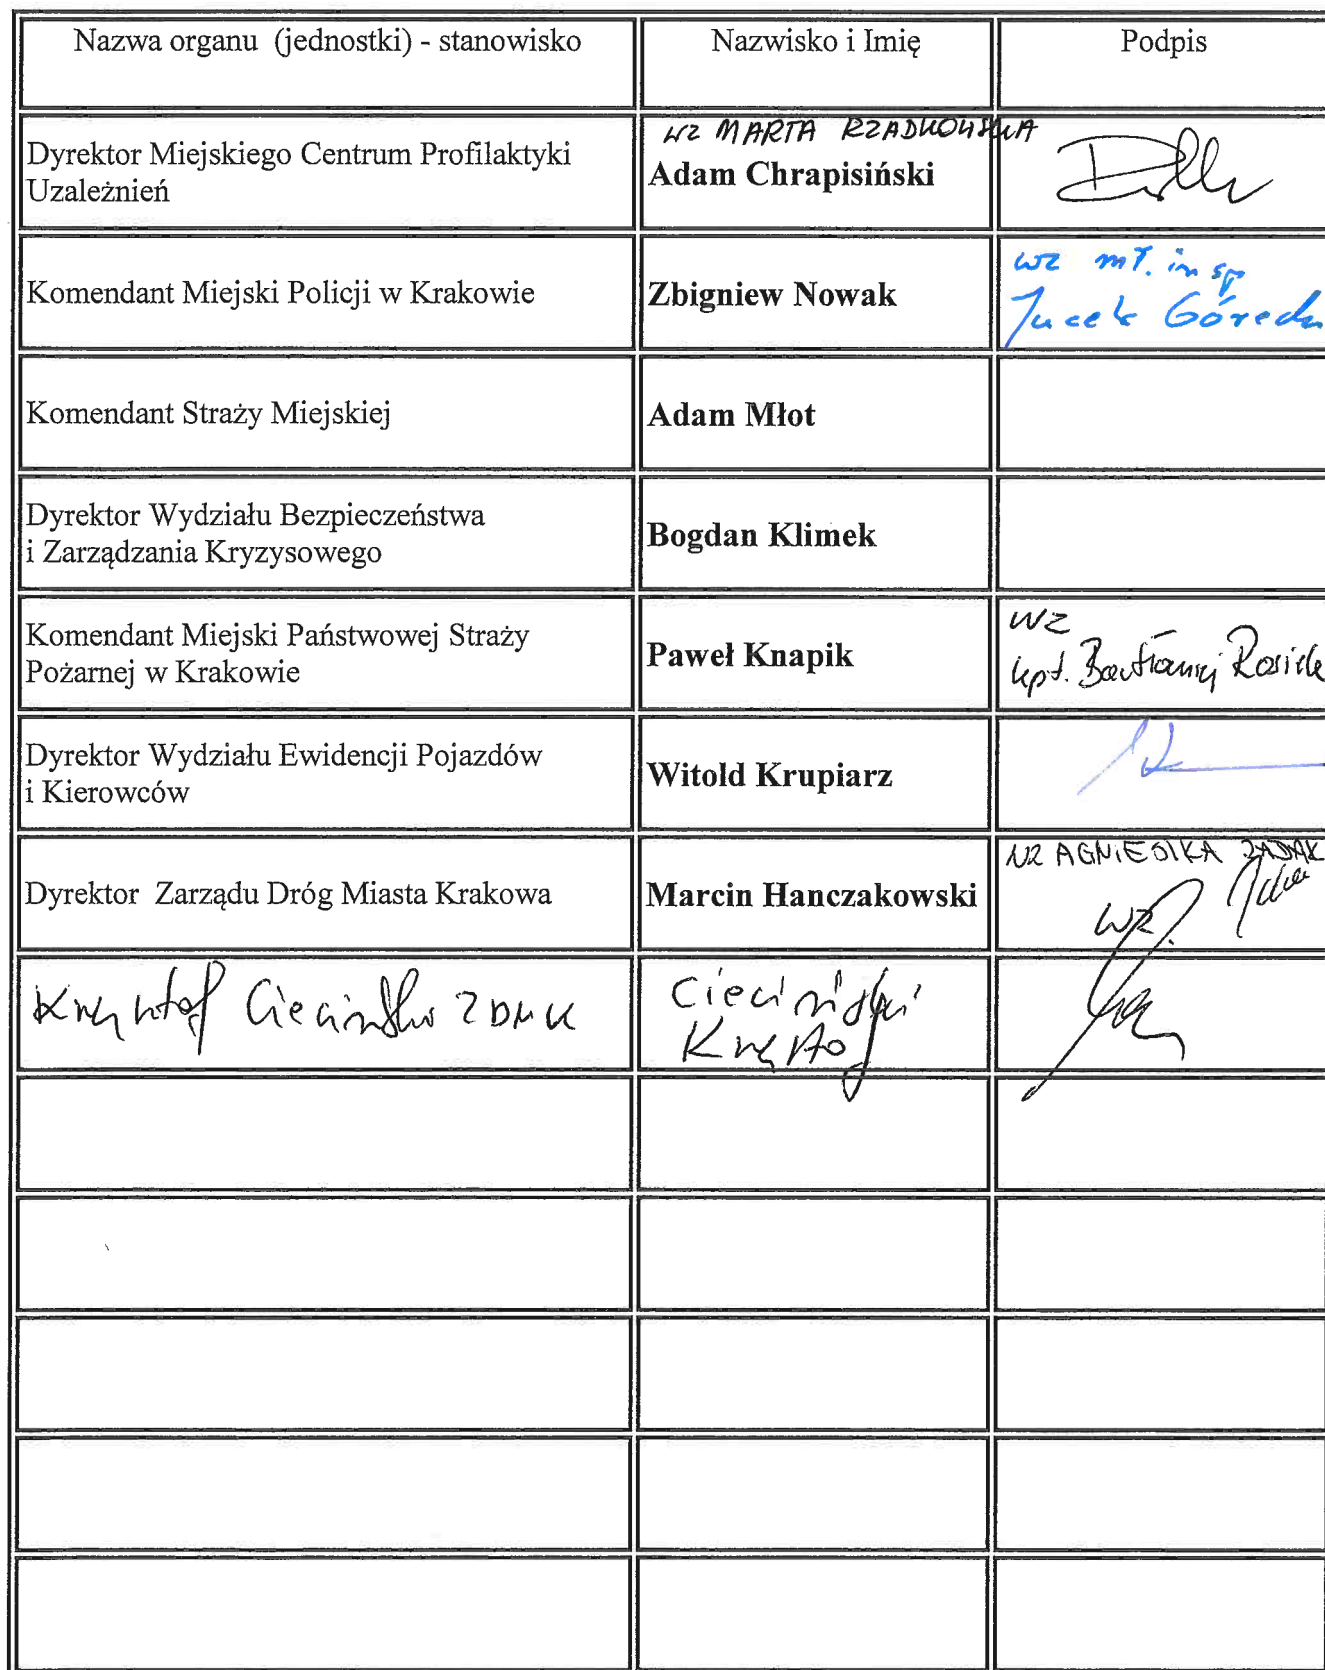 Nazwa organu (jednostki) - stanowisko
Nazwisko i Imię
Podpis
Dyrektor Miejskiego Centrum Profilaktyki
Uzależnień
WZ MARTA RZADKOWSKA
Adam Chrapisiński
Komendant Miejski Policji w Krakowie
Zbigniew Nowak
wz mł. insp
Jacek Górecki
Komendant Straży Miejskiej
Adam Młot
Dyrektor Wydziału Bezpieczeństwa
i Zarządzania Kryzysowego
Bogdan Klimek
Komendant Miejski Państwowej Straży
Pożarnej w Krakowie
Paweł Knapik
WZ
kpt. Bartłomiej Rosiek
Dyrektor Wydziału Ewidencji Pojazdów
i Kierowców
Witold Krupiarz
Dyrektor Zarządu Dróg Miasta Krakowa
Marcin Hanczakowski
WZ AGNIESZKA
WZ.
Krzysztof Cieciński ZDMK
Cieciński
Krzysztof